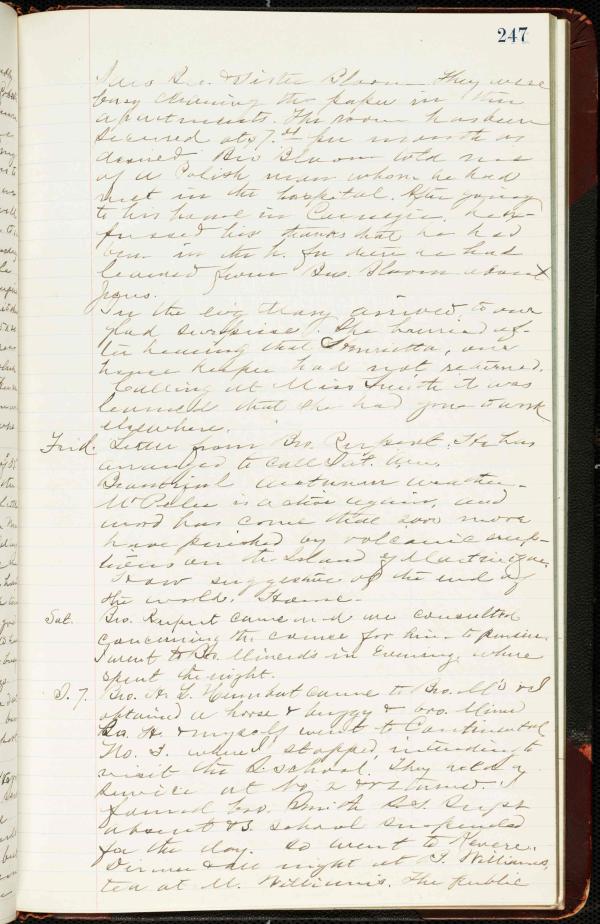 247
Bro. & Sister Bloom They were
busy cleaning the paper in their
apartments. The room has been
secured at $7.00 per month as
desired Bro Bloom told me
of a Polish man whom he had
met in the hospital. After going
to his home in Carnegie, he
his thanks that he had
been in the h. for there he had
learned from Bro. Bloom about
Jesus.
In the evg Mary arrived to our
glad surprise. She hurried af-
ter hearing that Henrietta, our
house keeper had not returned.
Calling at Miss Smith it was
learned that she had gone to work
elsewhere.
Frid. Letter from Bro. Rupert. He has
arranged to call Sat. eve.
Beautiful autumn weather.
Mt Pelee is active again, and
word has come that 2000 more
have perished by volcanic erup-
tions on the Island of Martinique.
How suggestive of the end of
the world. Home.
Sat. Bro. Rupert came and we consulted
concerning the course for him to pursue.
I went to Bro. Minerds in Evening, where
spent the night.
S. 7. Bro. H. S. came to Bro. M's & I
obtained a horse & buggy & Bro. Minerd
Bro. H. & myself went to Continental
No. 3. where I stopped intending to
visit the S. school. They
service at No. 2 & returned. I
found Bro. Smith S.S. Supt
absent & S. school suspended
for the day. So went to Revere.
Dinner & all night at T. Williams,
tea at M. Williams. The public